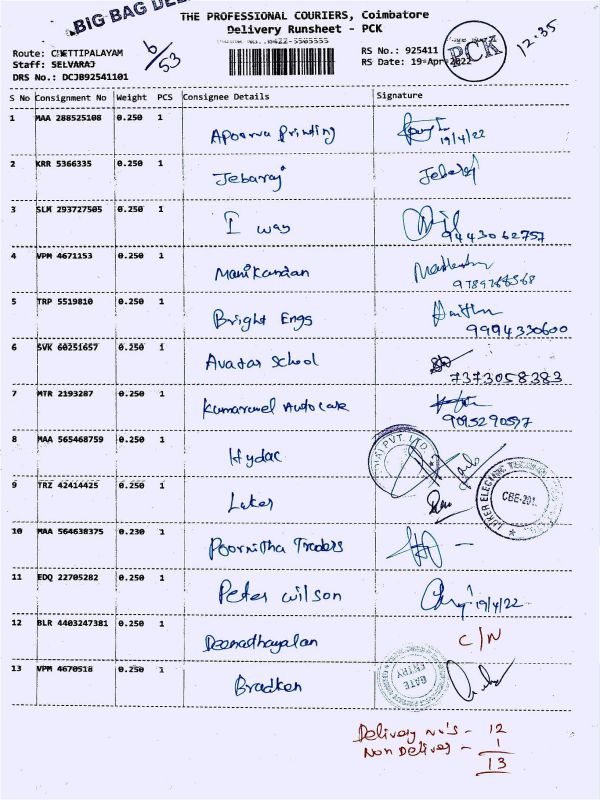 BIG BAG
THE PROFESSIONAL COURIERS, Coimbatore
Delivery Runsheet - PCK
0422-5505555
Route: CHETTIPALAYAM
Staff: SELVARAJ
DRS No.: DCJB92541101
6/53
RS No.: 925411
RS Date: 19-Apr-2022
PCK
12.35
S No Consignment No Weight PCS Consignee Details Signature
1 MAA 288525108 0.250 1 Apoorva Printing 19/4/22
2 KRR 5366335 0.250 1 Jebaraj Jebaraj
3 SLM 293727505 0.250 1 I way 9443062757
4 VPM 4671153 0.250 1 Manikandan 9789768568
5 TRP 5519810 0.250 1 Bright Engs 9994330600
6 SVK 60251657 0.250 1 Avatar School 7373058383
7 MTR 2193287 0.250 1 Kumaravel Autocare 9095290597
8 MAA 565468759 0.250 1 Hydac PVT. LTD
9 TRZ 42414425 0.250 1 Luker LUKER ELECTRIC CBE-201
10 MAA 564638375 0.230 1 Poornitha Traders
11 EDQ 22705282 0.250 1 Peter Wilson 19/4/22
12 BLR 4403247381 0.250 1 Deenadhayalan C/N
13 VPM 4670518 0.250 1 Bradken GATE ENTRY
Delivery No's - 12
Non Deliver - 1
13